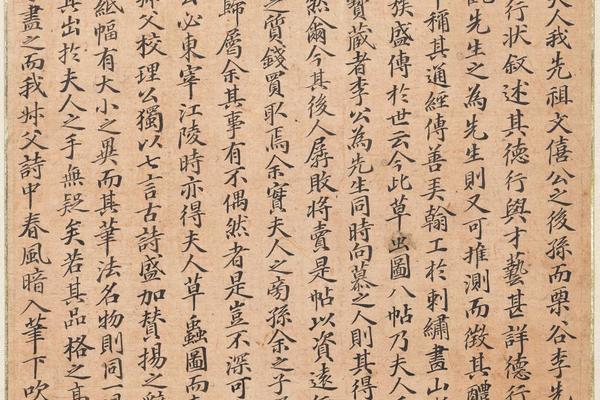 夫人我先祖文僖公之後孫而栗谷李先
行状叙述其德行與才藝甚詳德行
先生之為先生則又可推測而徵其醴
中稱其通經傳善弄翰工於刺繡畫山
族盛傳於世云今此草虫圖八帖乃夫人
寶藏者李公為先生同時向慕之人則其得
然爾今其後人孱敗將賣是帖以資遠
之質錢買臥焉余實夫人之旁孫余之子
歸屬余其事有不偶然者是豈不深可
公必東宰江陵時亦得夫人草蟲圖而
叔父校理公獨以七言古詩盛加賛揚之辭
紙幅有大小之異而其筆法名物則同一
其出於夫人之手無疑矣若其品格之高
盡之而我叔父詩中春風暗入筆下吹